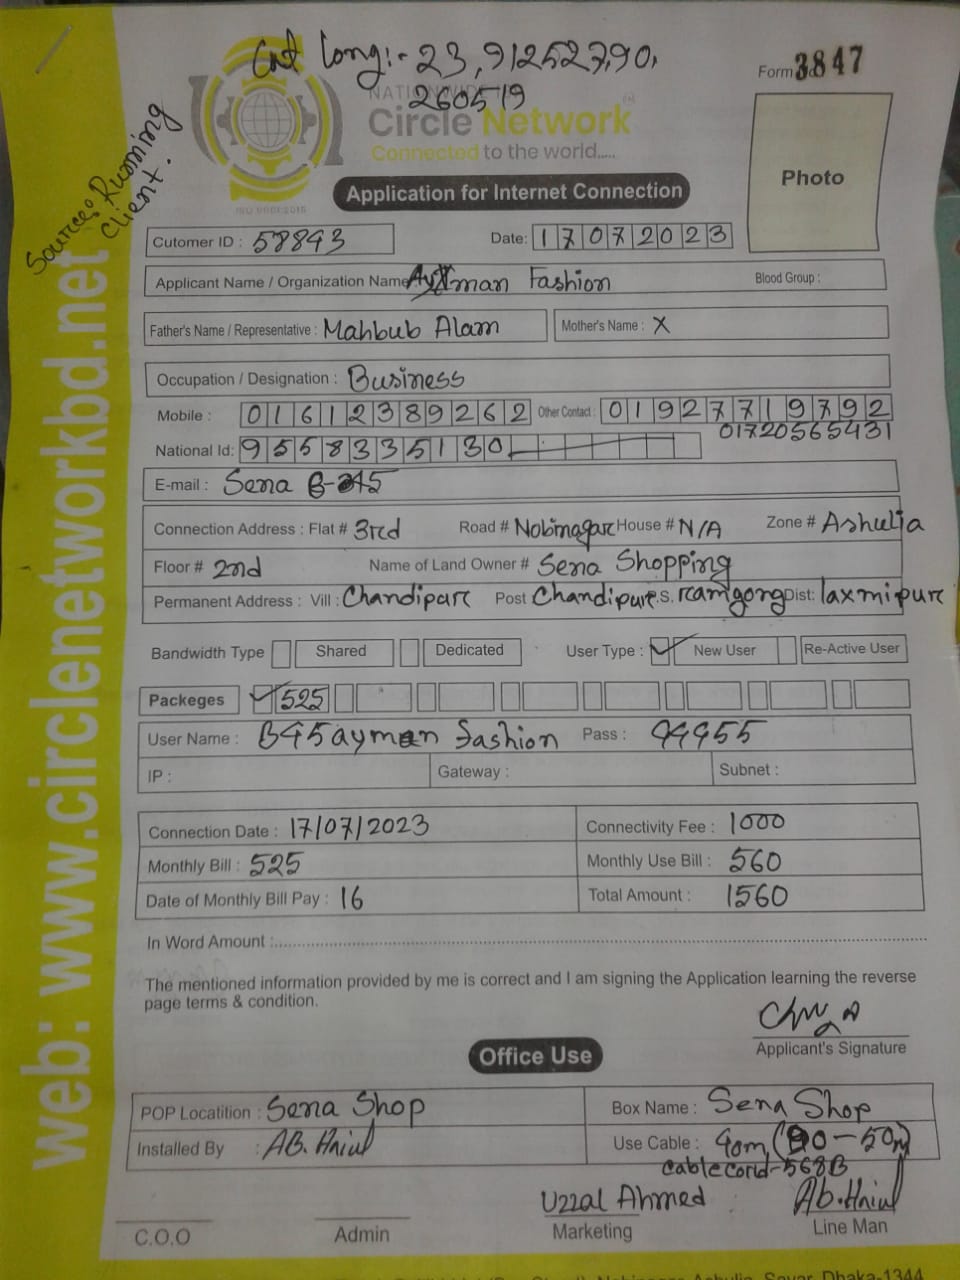 Cat long:- 23,9125279,90,
260519
Form 3847
Source: Running
Client.
NATIONWIDE
Circle Network
Connected to the world.....
ISO 9001:2015
Photo
Application for Internet Connection
Cutomer ID : 58843 Date: 17072023
Applicant Name / Organization Name Ayman Fashion Blood Group :
Father's Name / Representative : Mahbub Alam Mother's Name : X
Occupation / Designation : Business
Mobile : 01612389262 Other Contact : 01927719792
01720565431
National Id: 9558335130
E-mail : Sena B-
Connection Address : Flat # 3rd Road # Nobinagar House # N/A Zone # Ashulia
Floor # 2nd Name of Land Owner # Sena Shopping
Permanent Address : Vill : Chandipur Post Chandipur P.S. ramgong Dist: laxmipur
Bandwidth Type Shared Dedicated User Type : ✓ New User Re-Active User
Packeges ✓ 525
User Name : B45ayman fashion Pass : 99955
IP : Gateway : Subnet :
Connection Date : 17/07/2023 Connectivity Fee : 1000
Monthly Bill : 525 Monthly Use Bill : 560
Date of Monthly Bill Pay : 16 Total Amount : 1560
In Word Amount :
The mentioned information provided by me is correct and I am signing the Application learning the reverse
page terms & condition.
Applicant's Signature
Office Use
POP Locatition : Sena Shop Box Name : Sena Shop
Installed By : AB. Use Cable : 40m (90-50m)
cable corid-568B
Uzzal Ahmed Ab.
C.O.O Admin Marketing Line Man
web: www.circlenetworkbd.net